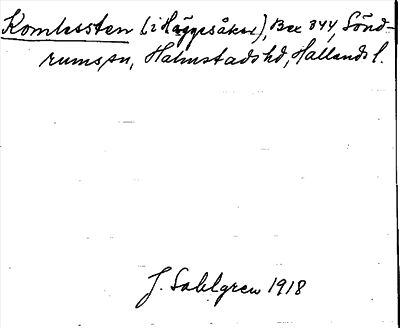 Komlessten (i Häggesåker), Bex 844, Sönd-
rums sn, Halmstads hd, Hallands l.
J. Sahlgren 1918